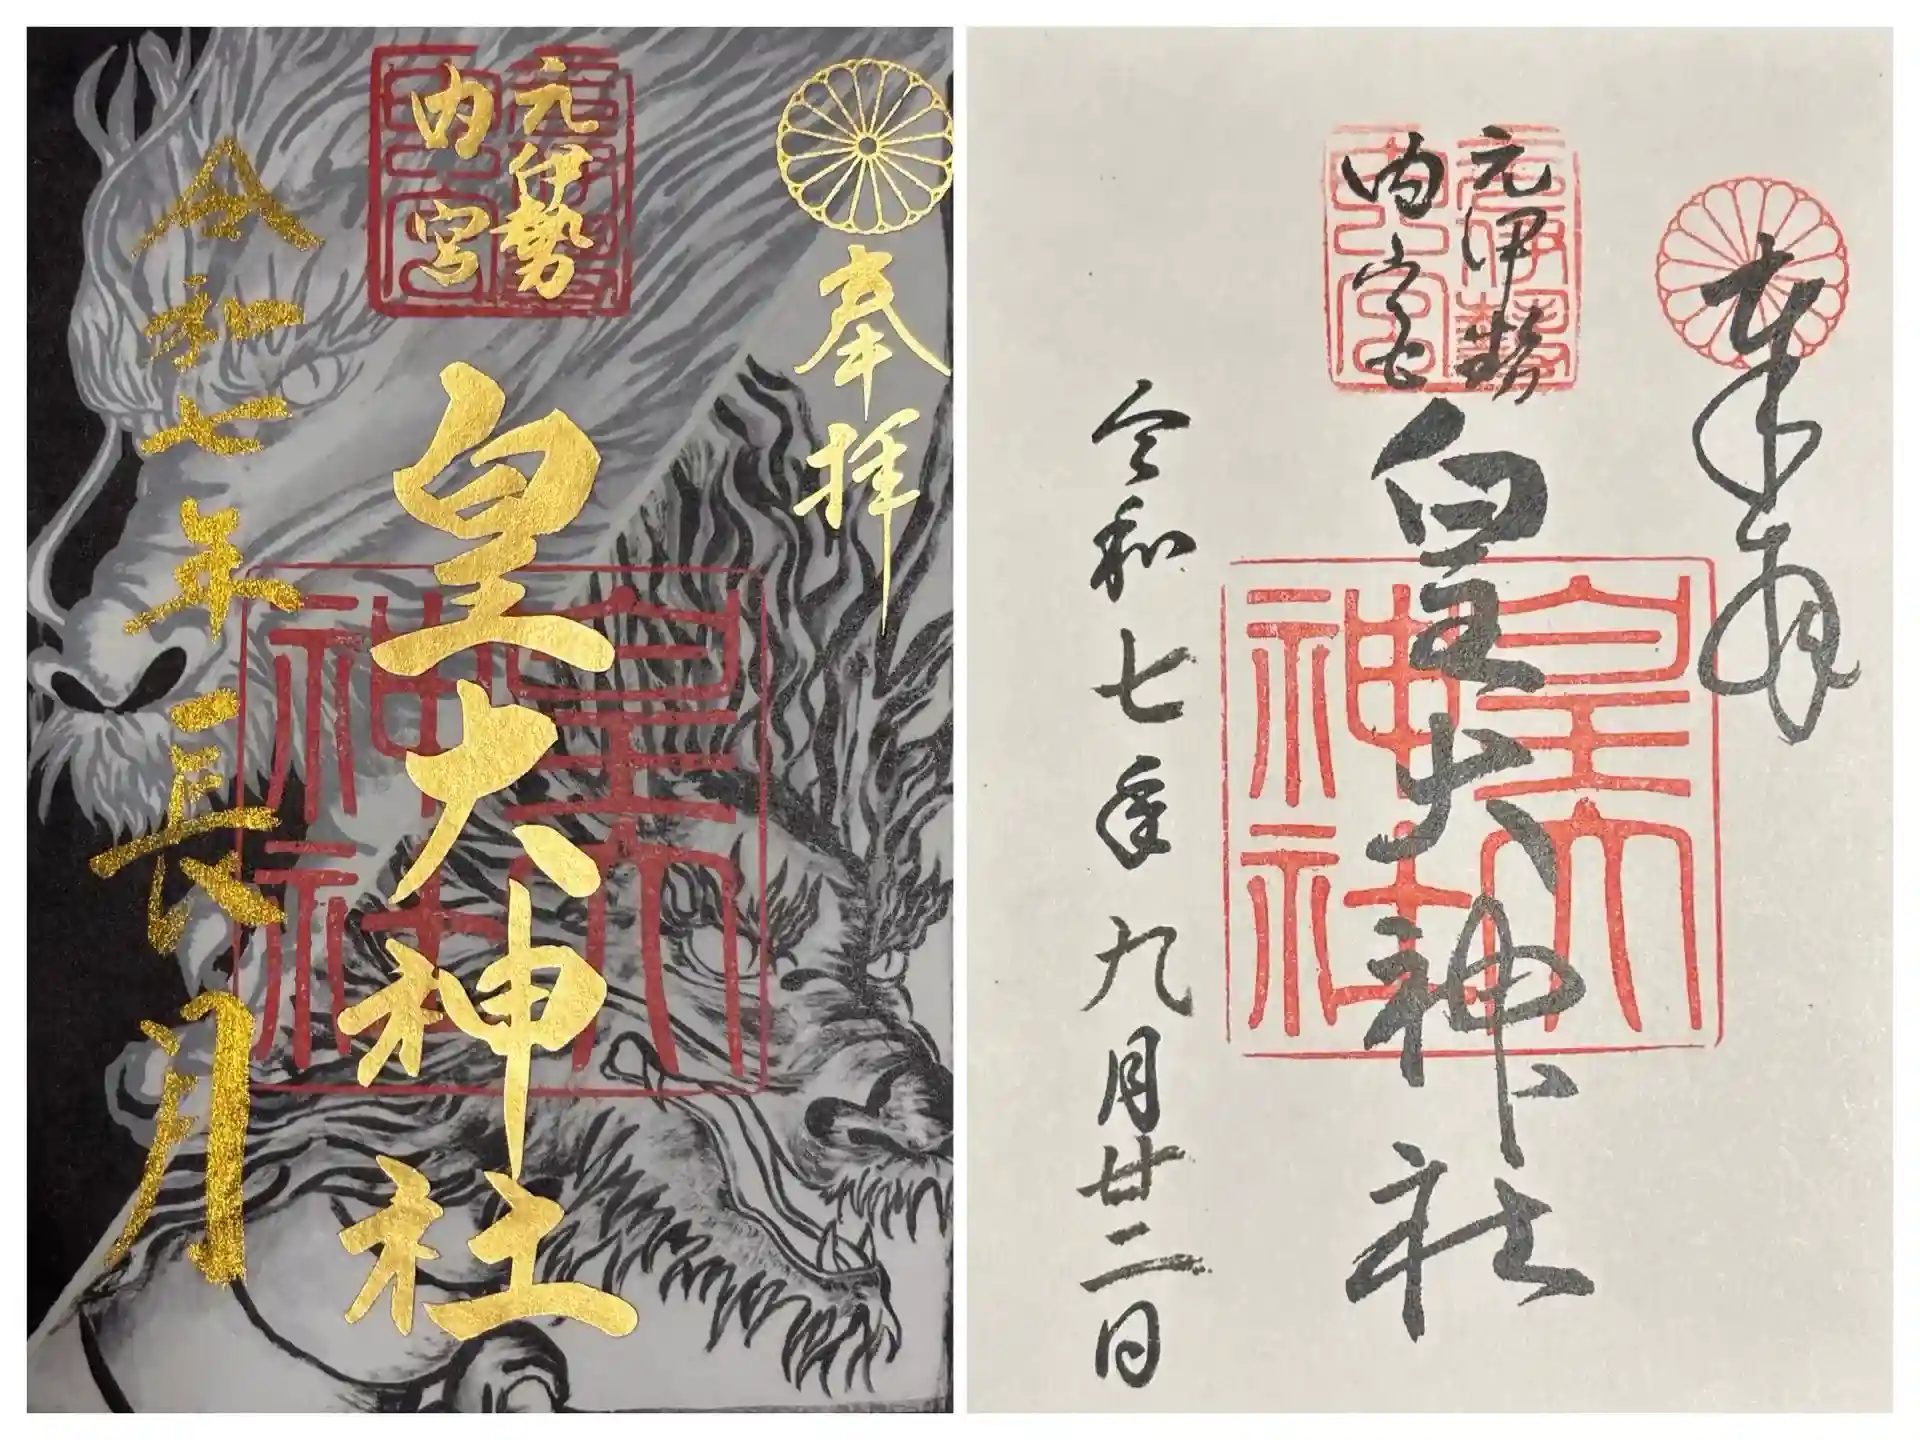 奉拝
元伊勢
内宮
皇大神社
令和七年長月
奉拝
元伊勢
内宮
皇大神社
令和七年九月廿二日
皇大
神社
皇大
神社
元伊勢
内宮
元伊勢
内宮